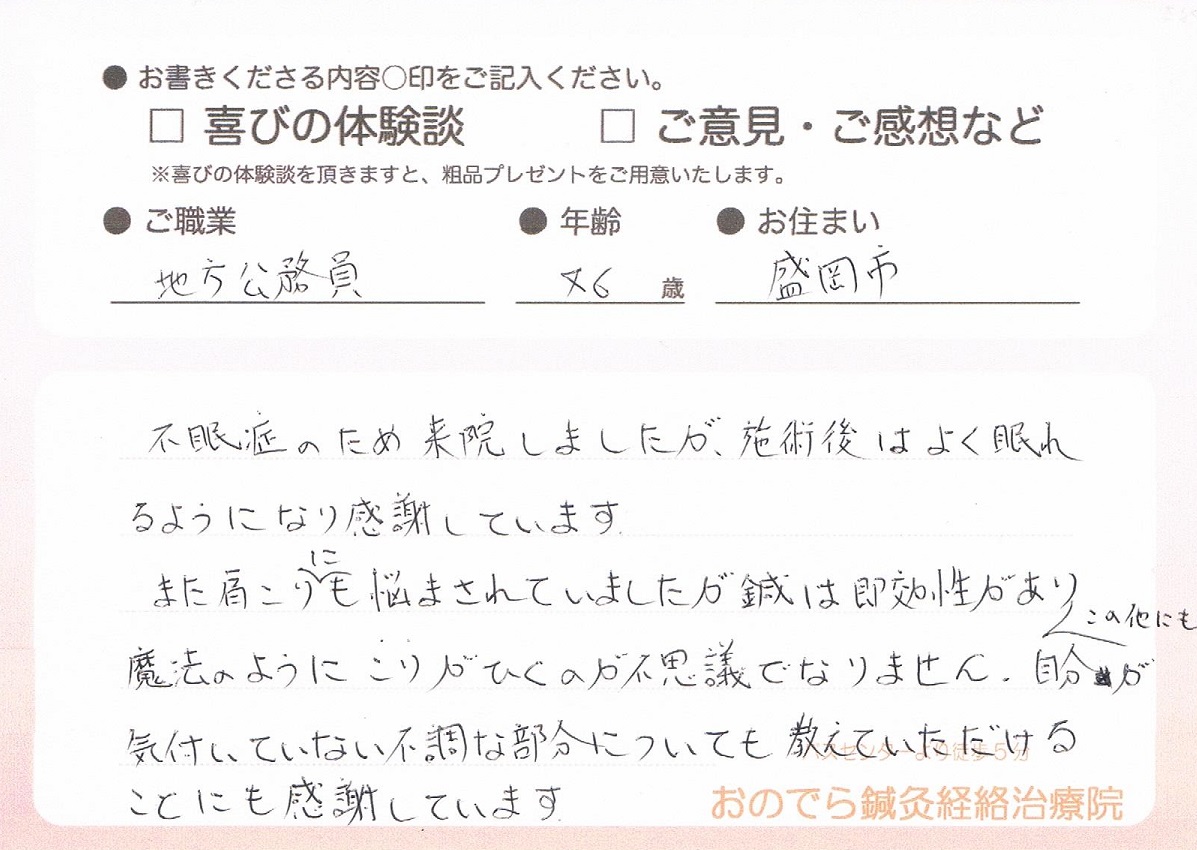 ● お書きくださる内容○印をご記入ください。
□ 喜びの体験談 □ ご意見・ご感想など
※喜びの体験談を頂きますと、粗品プレゼントをご用意いたします。
● ご職業 ● 年齢 ● お住まい
地方公務員 6 歳 盛岡市
不眠症のため来院しましたが、施術後はよく眠れ
るようになり感謝しています.
に
また肩こりも悩まされていましたが鍼は即効性があり
この他にも
魔法のようにこりがひくのが不思議でなりません. 自分が
気付いていない不調な部分についても教えていただける
バスセンターより徒歩5分
ことにも感謝しています
おのでら鍼灸経絡治療院